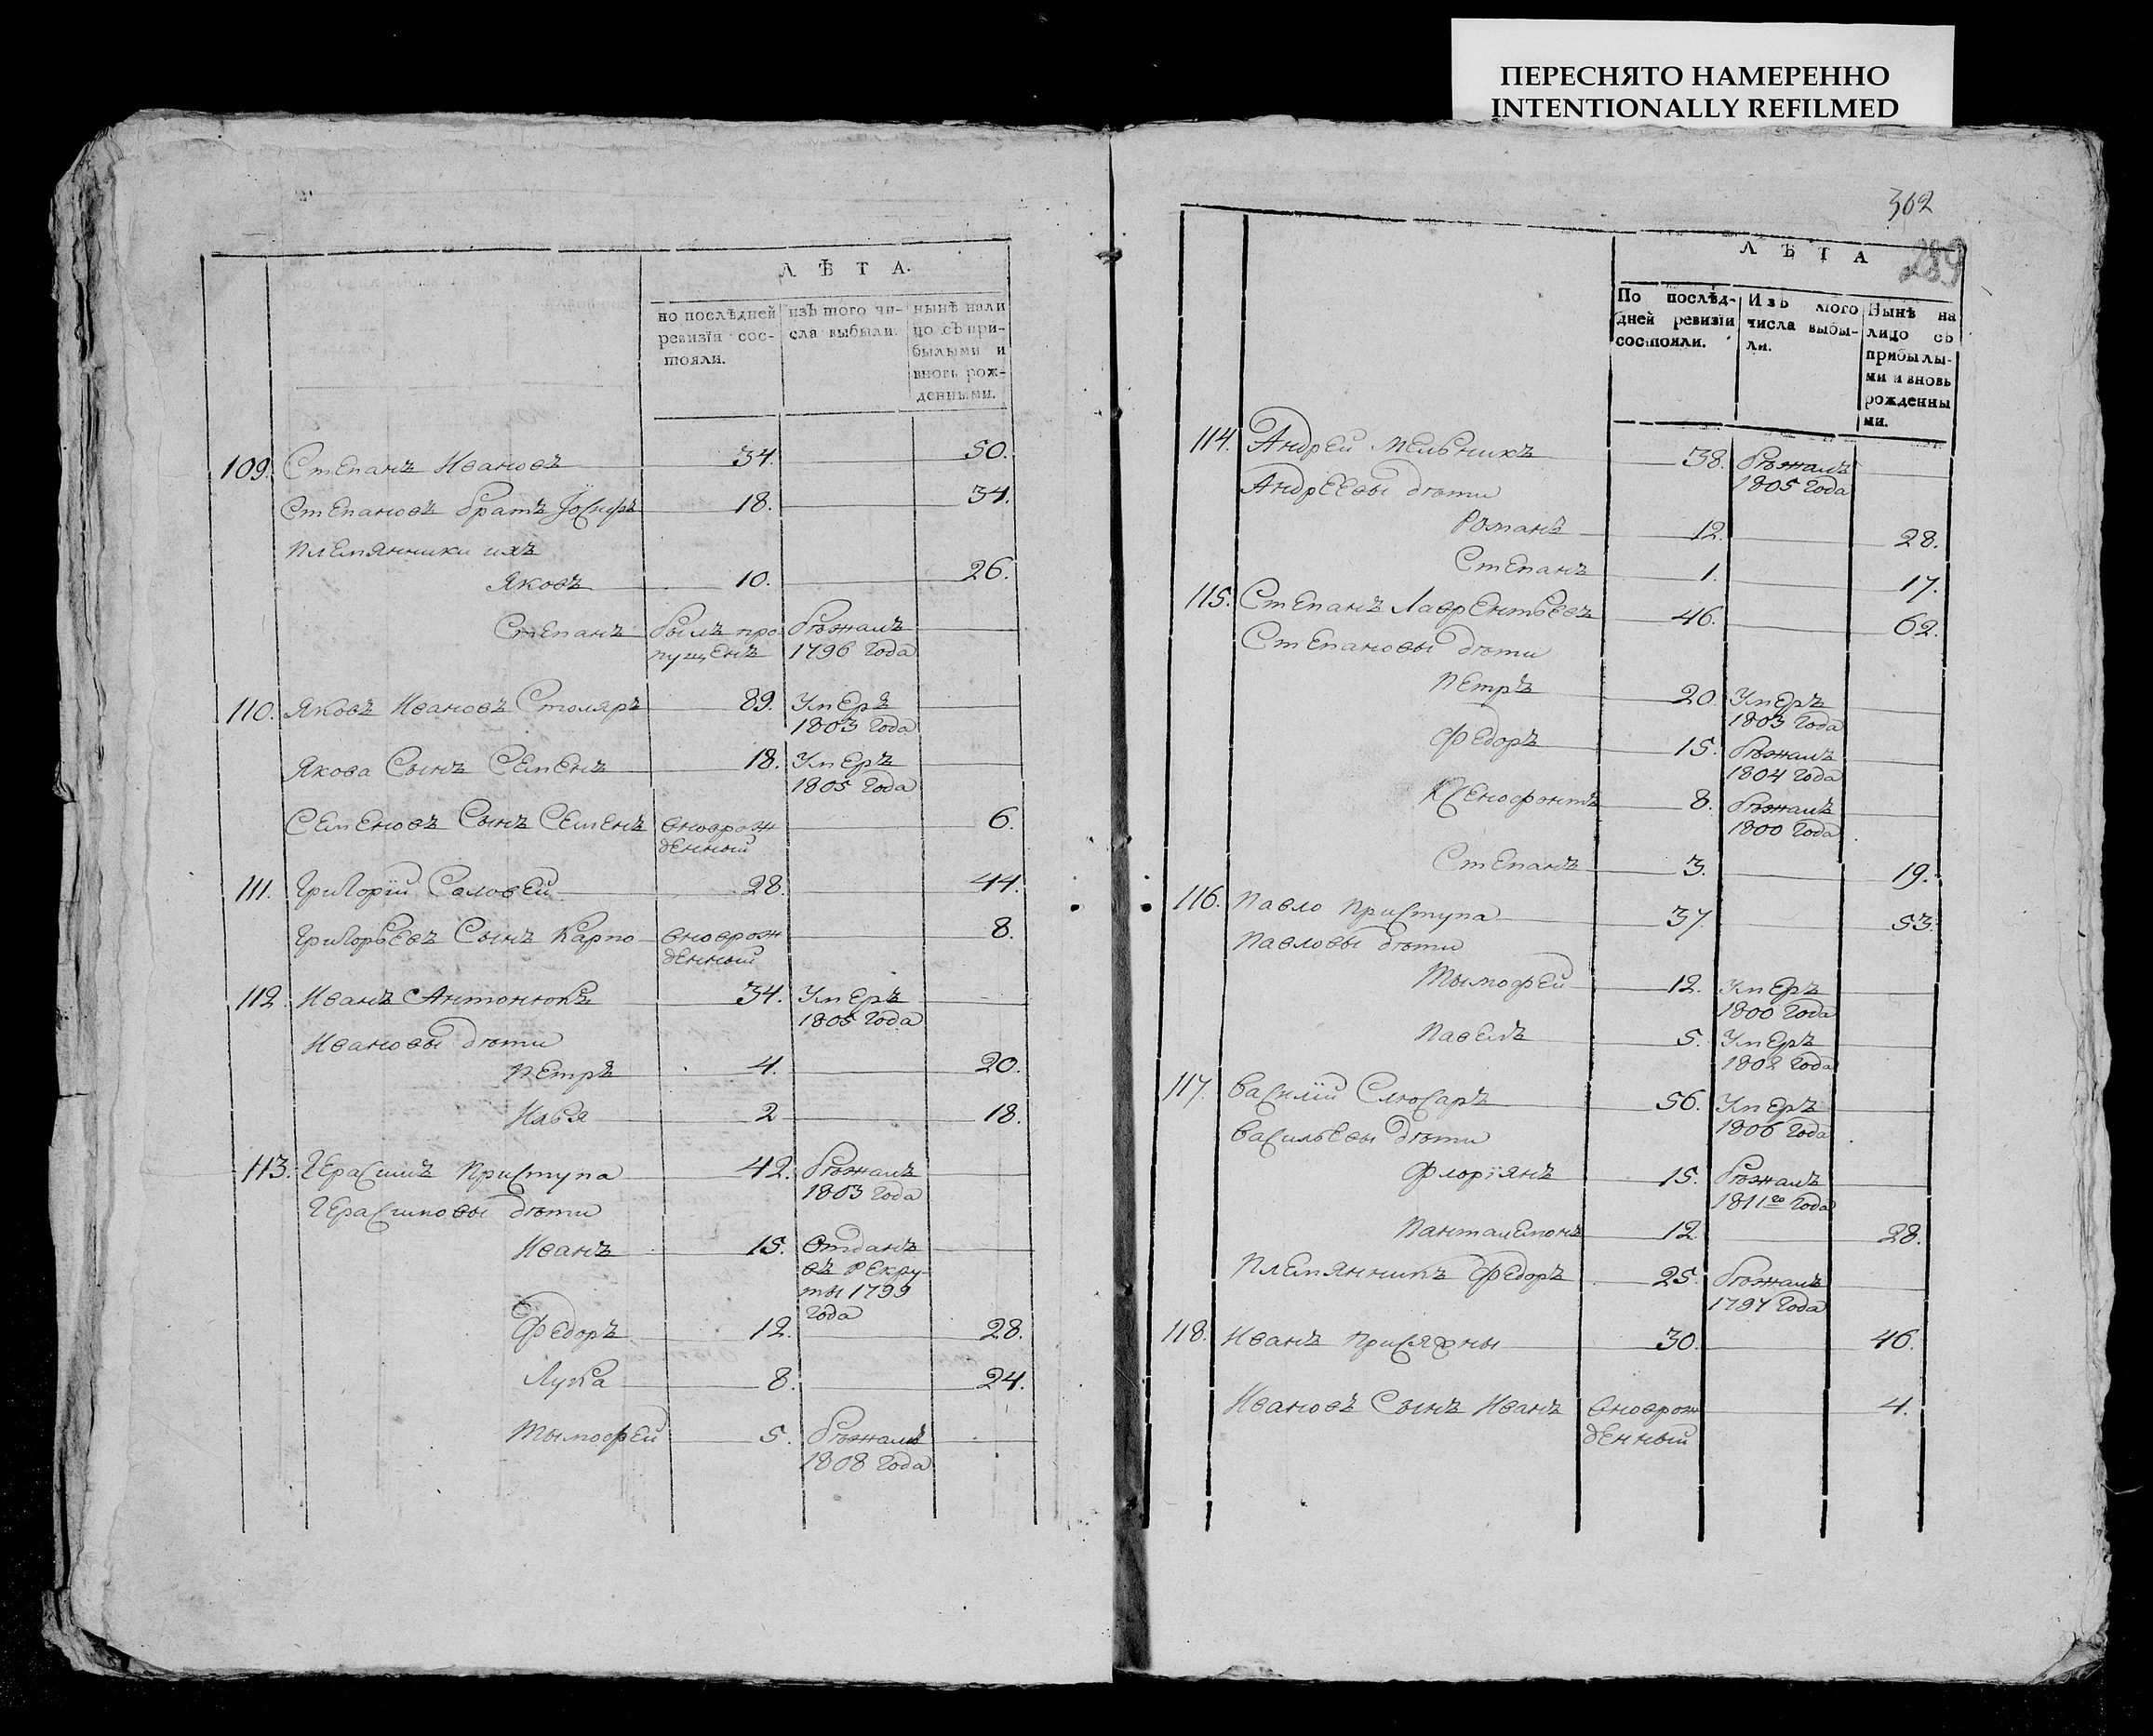 ПЕРЕСНЯТО НАМЕРЕННО
INTENTIONALLY REFILMED
Л Ѣ Т А.
по послѣдней ревизїи сос-тояли.
изъ того чи-сла выбыли.
нынѣ нали цо съ при-былыми и вновь рож-денными.
109. Степанъ Ивановъ 34. 50.
Степановъ братъ Іосифъ 18. 34.
племянники ихъ
Яковъ 10. 26.
Степанъ былъ про бѣжалъ
пущенъ 1796 года
110. Яковъ Ивановъ Столяръ 89. Умеръ
1803 года
Якова Сынъ Семенъ 18. Умеръ
1805 года
Семеновъ Сынъ Семенъ вноврож 6.
денный
111. Григорїй Соловей 28. 44.
Григорьевъ Сынъ Карпо вноврож 8.
денный
112. Иванъ Антонюкъ 34. Умеръ
1805 года
Ивановы дѣти
Петръ 4. 20.
Илья 2 18.
113. Герасимъ Приступа 42. бѣжалъ
1803 года
Герасимовы дѣти
Иванъ 15. Отданъ
въ рекру-
ты 1799
года
Федоръ 12. 28.
Лука 8. 24.
Тымофей 5. бѣжалъ
1808 года
302
289
Л Ѣ Т А
По послѣд-дней ревизїи состояли.
Изъ того числа выбы-ли.
Нынѣ на лицо съ прибылы-ми и вновь рожденны ми.
114. Андрей Мельникъ 38. бѣжалъ
1805 года
Андреевы дѣти
Романъ 12. 28.
Степанъ 1. 17.
115. Степанъ Лаврентьевъ 46. 62.
Степановы дѣти
Петръ 20. Умеръ
1803 года
Федоръ 15. бѣжалъ
1804 года
Ксенофонтъ 8. бѣжалъ
1800 года
Степанъ 3. 19.
116. Павло Приступа 37. 53.
Павловы дѣти
Тымофей 12. Умеръ
1800 года
Павелъ 5. Умеръ
1802 года
117. Василїй Слюсаръ 56. Умеръ
1806 года
Васильевы дѣти
Флорїянъ 15. бѣжалъ
1811го года
Панталемонъ 12. 28.
Племянникъ Федоръ 25. бѣжалъ
1797 года
118. Иванъ Присяжны 30. 46.
Ивановъ Сынъ Иванъ вноврож 4.
денный